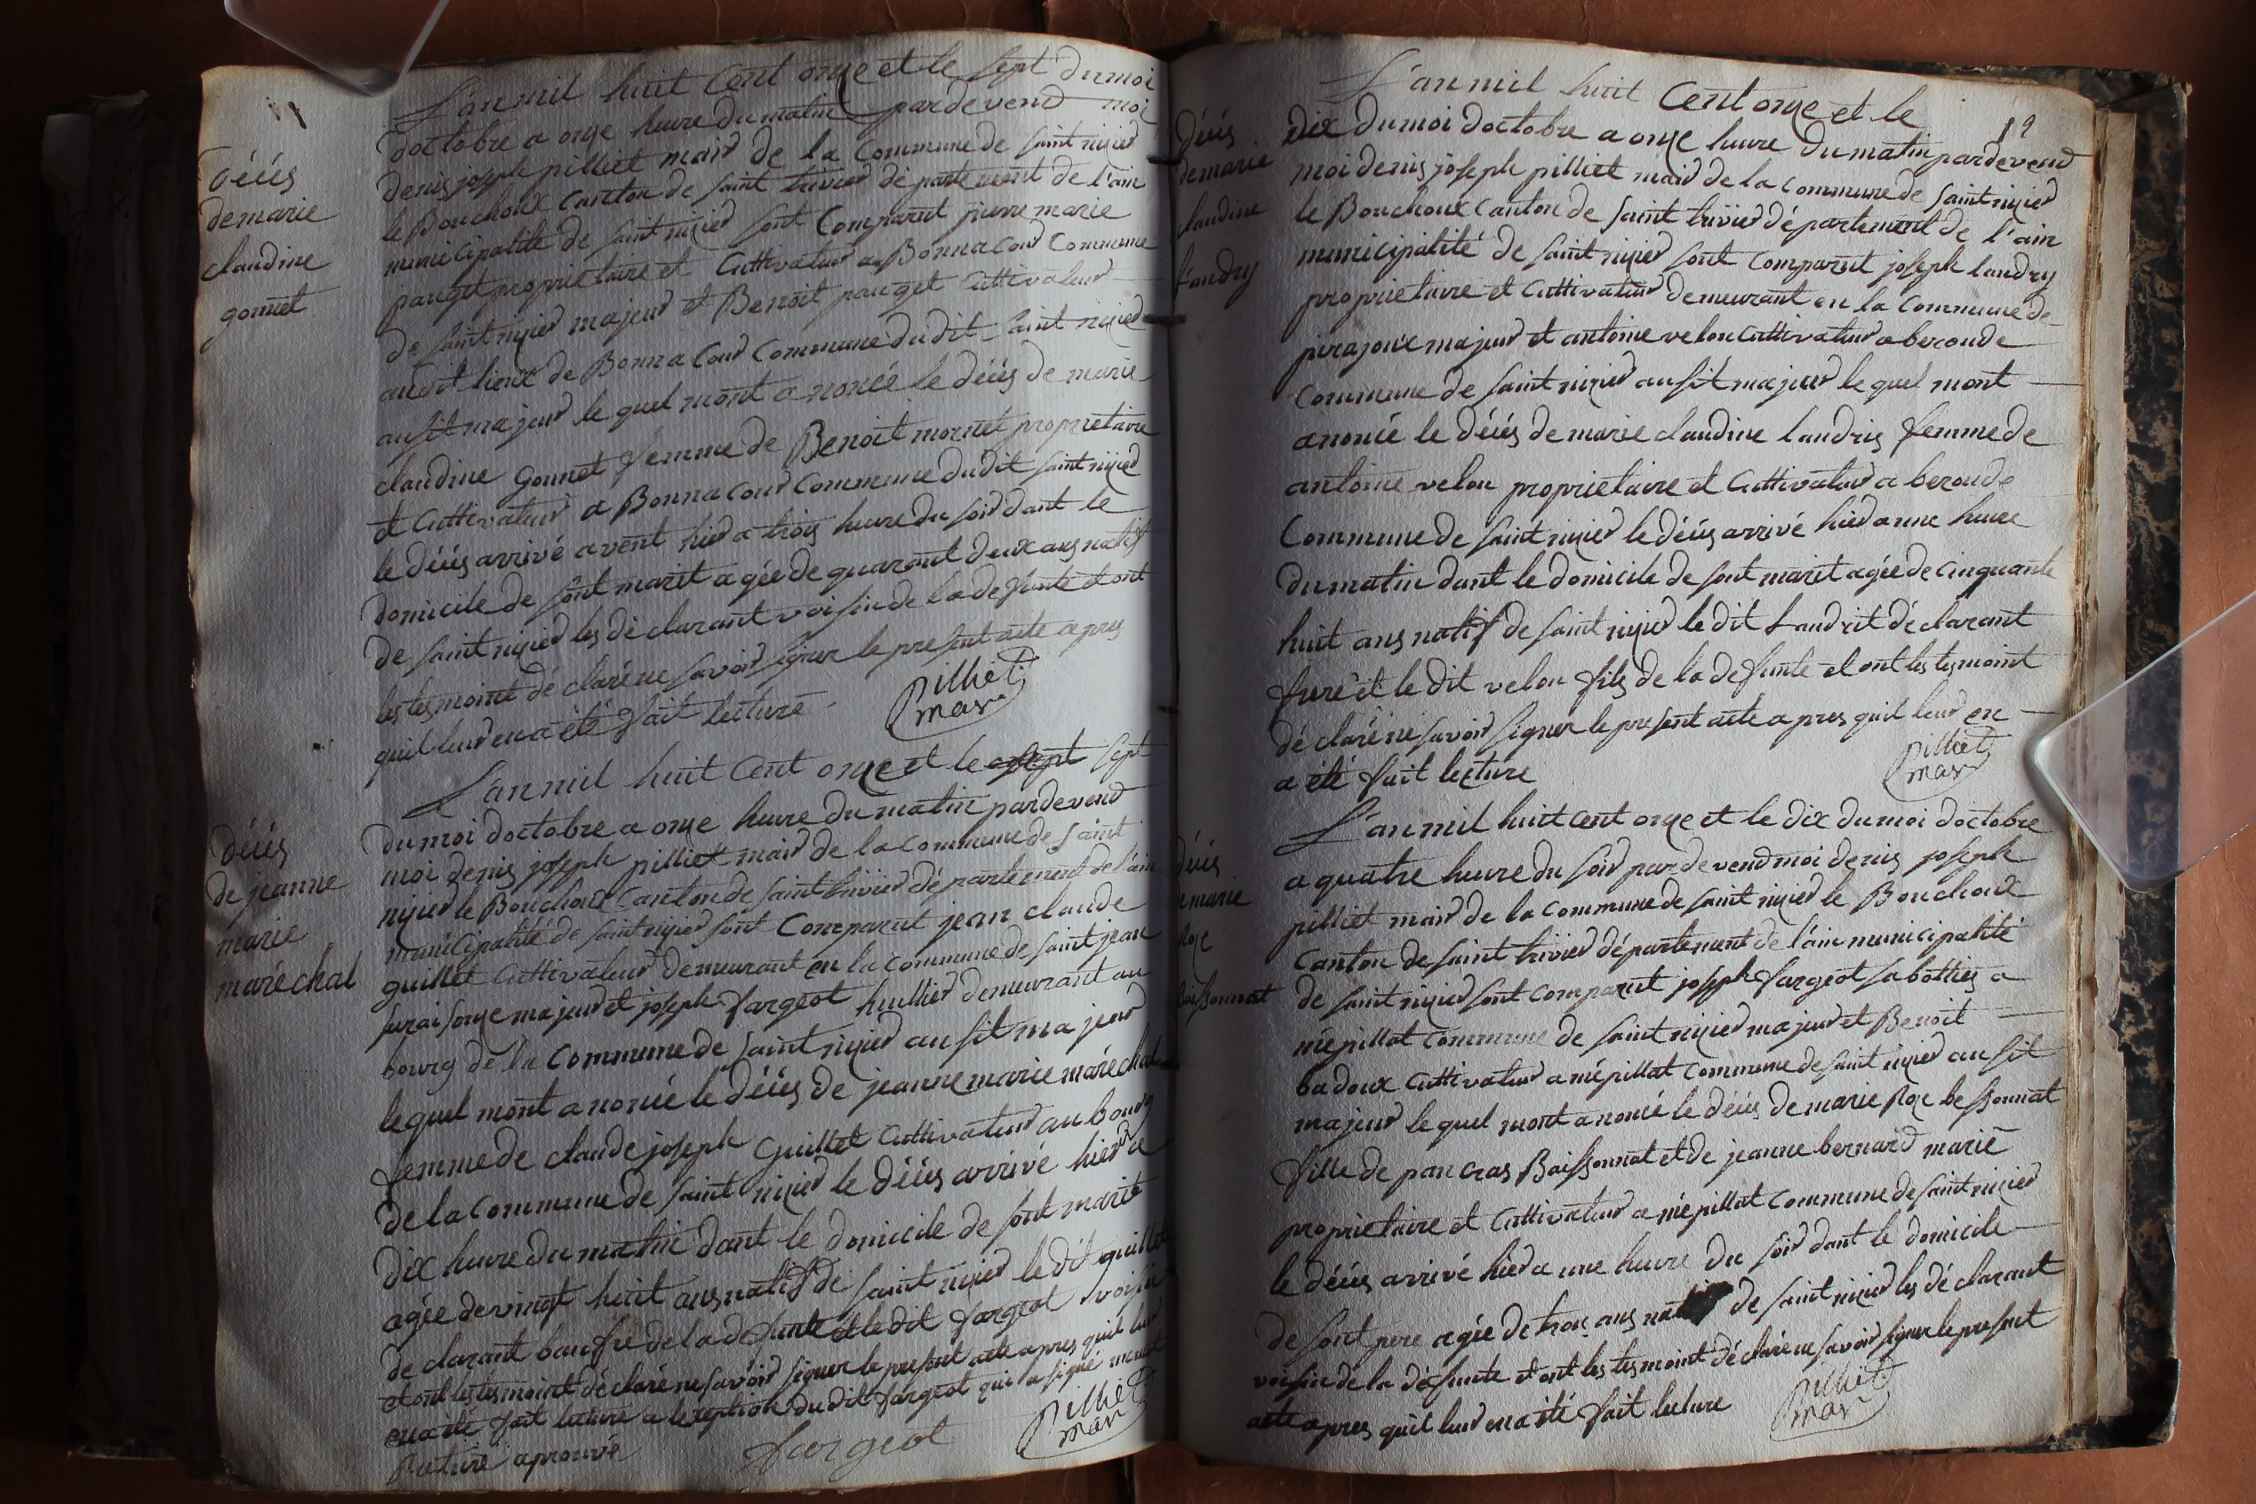 décés
de marie
claudine
gonnet
L'an mil huit cent onze et le sept du moi
doctobre a onze heure du matin pardevend moi
denis joseph pilliet mair de la commune de saint nizier
le Bouchoux canton de saint trivier département de l'ain
municipalité de saint nizier sont comparut pierre marie
pauget proprietaire et cultivateur a Bonnacour commune
de saint nizier majeur et Benoit pauget cultivateur
audit lieux de Bonnacour commune dudit saint nizier
ausit majeur le quel mont anoncé le décés de marie
claudine gonnet femme de Benoit mornet proprietaire
et cultivateur a Bonnacour commune dudit saint nizier
le décés arrivé avent hier a trois heure du soir dant le
domicile de sont marit agée de quarant deux ans natif
de saint nizier les déclarant voisin de la defunte et ont
les tesmoint déclaré ne savoir signer le present acte apres
quil leur en a été fait lecture
Pilliet
mair
décés
de jeanne
marie
maréchal
L'an mil huit cent onze et le sept sept
du moi doctobre a onze heure du matin pardevend
moi denis joseph pilliet mair de la commune de saint
nizier le Bouchoux canton de saint trivier département de l'ain
municipalité de saint nizier sont comparut jean claude
guillet cultivateur demeurant en la commune de saint jean
suraisouze majeur et joseph fargeot huillier demeurant au
bourg de la commune de saint nizier ausit majeur
lequel mont anoncé le décés de jeanne marie maréchal
femme de claude joseph guillet cultivateur au bourg
de la commune de saint nizier le décés arrivé hier a
dix heure du matin dant le domicile de sont marit
agée de vingt huit ans natif de saint nizier le dit guillet
declarant baufre de la defunte et le dit fargeot voisin
et ont les tesmoint déclaré ne savoir signer le present acte apres quil leur
en a été fait lecture a lexeption du dit fargeot qui a signé
rature aprouvé
fargeot
Pilliet
mair
19
décés
de marie
claudine
Landry
L'an mil huit cent onze et le
dix du moi doctobre a onze heure du matin pardevend
moi denis joseph pilliet mair de la commune de saint nizier
le Bouchoux canton de saint trivier département de l'ain
municipalité de saint nizier sont comparut joseph landry
proprietaire et cultivateur demeurant en la commune de
pirajoux majeur et antoine velon cultivateur a beroude
commune de saint nizier ausit majeur le quel mont
anoncé le décés de marie claudine landris femme de
antoine velon proprietaire et cultivateur a beroude
commune de saint nizier le décés arrivé hier a une heure
du matin dant le domicile de sont marit agée de cinquante
huit ans natif de saint nizier le dit Landrit déclarant
frere et le dit velon fils de la defunte et ont les tesmoint
déclaré ne savoir signer le present acte apres quil leur en
a été fait lecture
Pilliet
mair
décés
de marie
Roze
Baissonnat
L'an mil huit cent onze et le dix du moi doctobre
a quatre heure du soir pardevend moi denis joseph
pilliet mair de la commune de saint nizier le Bouchoux
canton de saint trivier département de l'ain municipalité
de saint nizier sont comparut joseph fargeot sabottier a
mépillat commune de saint nizier majeur et Benoit
badoux cultivateur a mépillat commune de saint nizier ausit
majeur le quel mont anoncé le décés de marie Roze bessonnat
fille de pancras Baissonnat et de jeanne bernard marié
proprietaire et cultivateur a mépillat commune de saint nizier
le décés arrivé hier a une heure du soir dant le domicile
de sont pere agée de trois ans natif de saint nizier les déclarant
voisin de la défunte et ont les tesmoint déclaré ne savoir signer le present
acte apres quil leur en a été fait lecture
Pilliet
mair